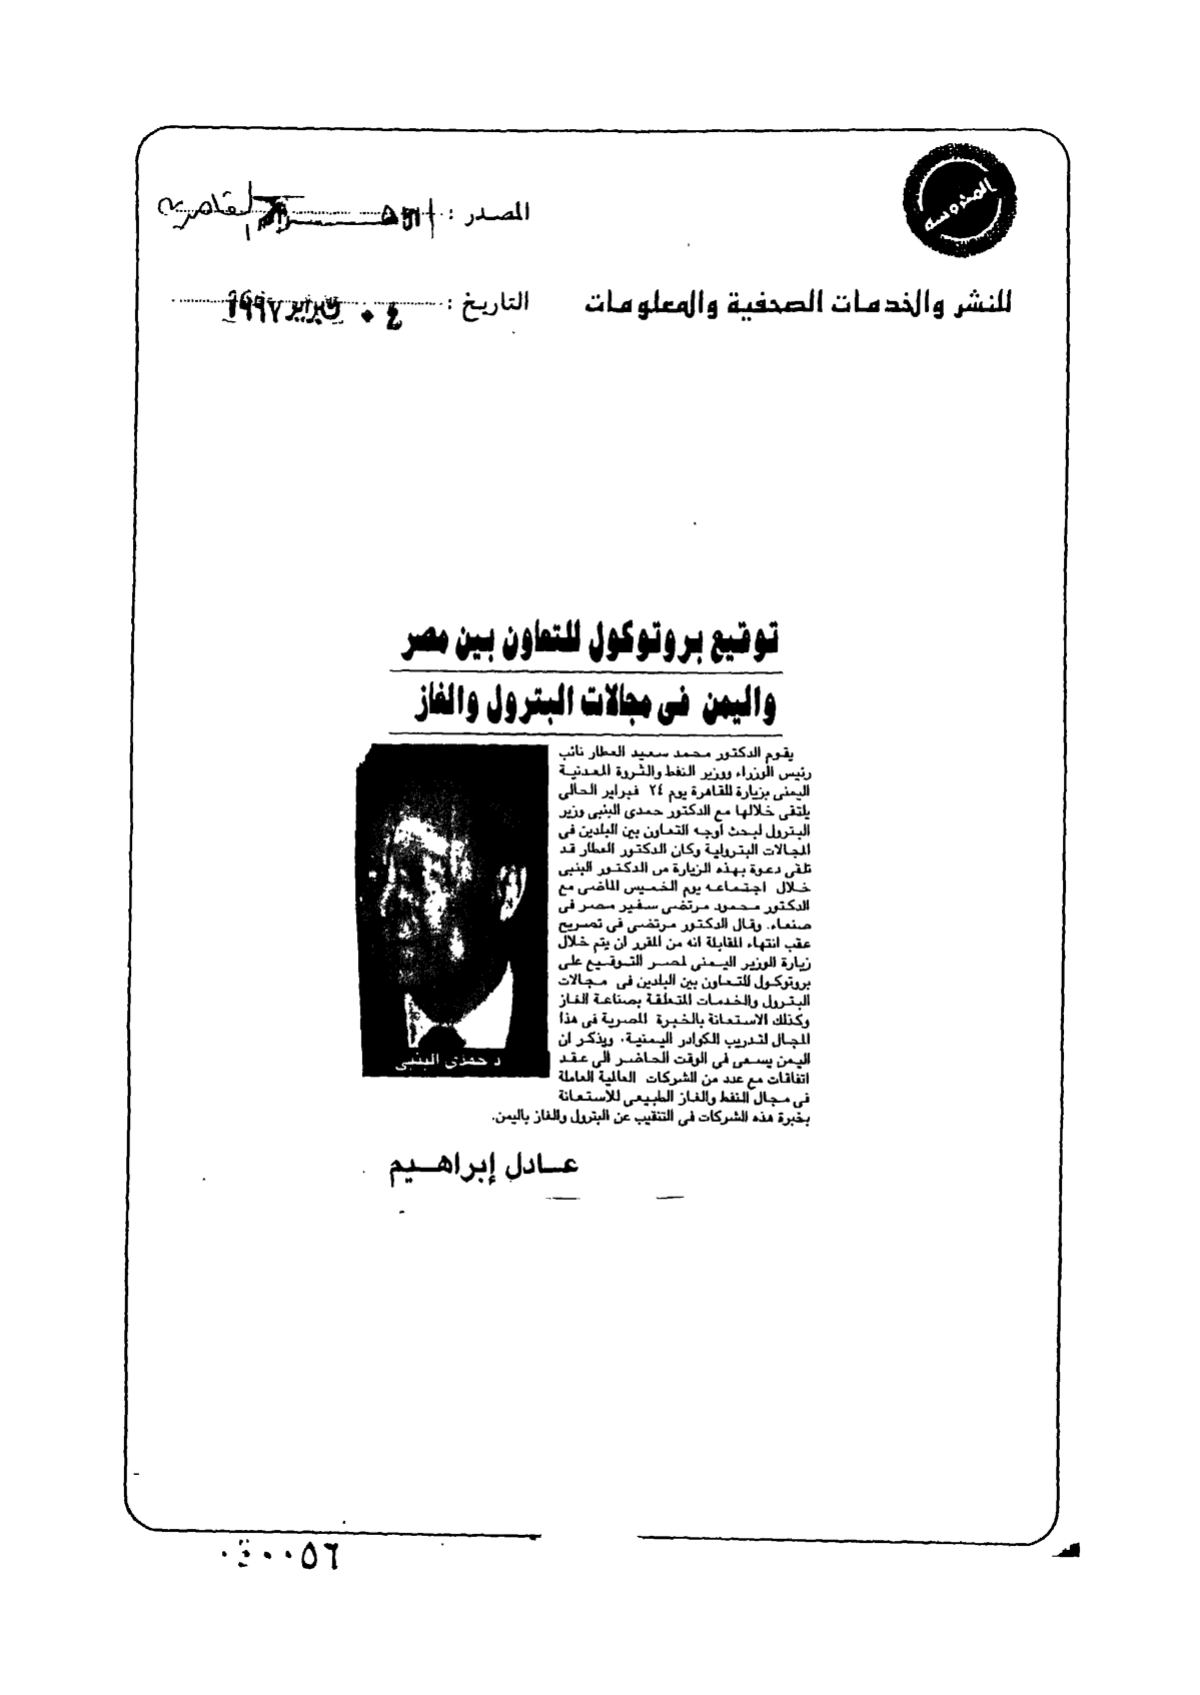 المحروسة
المصدر :
للنشر والخدمات الصحفية والمعلومات
التاريخ : ٠٤ فبراير ١٩٩٧
توقيع بروتوكول للتعاون بين مصر
واليمن فى مجالات البترول والغاز
يقوم الدكتور محمد سعيد العطار نائب
رئيس الوزراء ووزير النفط والثروة المعدنية
اليمنى بزيارة للقاهرة يوم ٢٤ فبراير الحالى
يلتقى خلالها مع الدكتور حمدى البنبى وزير
البترول لبحث أوجه التعاون بين البلدين فى
المجالات البترولية وكان الدكتور العطار قد
تلقى دعوة بهذه الزيارة من الدكتور البنبى
خلال اجتماعه يوم الخميس الماضى مع
الدكتور محمود مرتضى سفير مصر فى
صنعاء. وقال الدكتور مرتضى فى تصريح
عقب انتهاء المقابلة انه من المقرر ان يتم خلال
زيارة الوزير اليمنى لمصر التوقيع على
بروتوكول للتعاون بين البلدين فى مجالات
البترول والخدمات المتعلقة بصناعة الغاز
وكذلك الاستعانة بالخبرة المصرية فى هذا
المجال لتدريب الكوادر اليمنية. ويذكر ان
اليمن يسعى فى الوقت الحاضر الى عقد
اتفاقات مع عدد من الشركات العالمية العاملة
فى مجال النفط والغاز الطبيعى للاستعانة
بخبرة هذه الشركات فى التنقيب عن البترول والغاز باليمن.
د حمدى البنبى
عادل إبراهيم